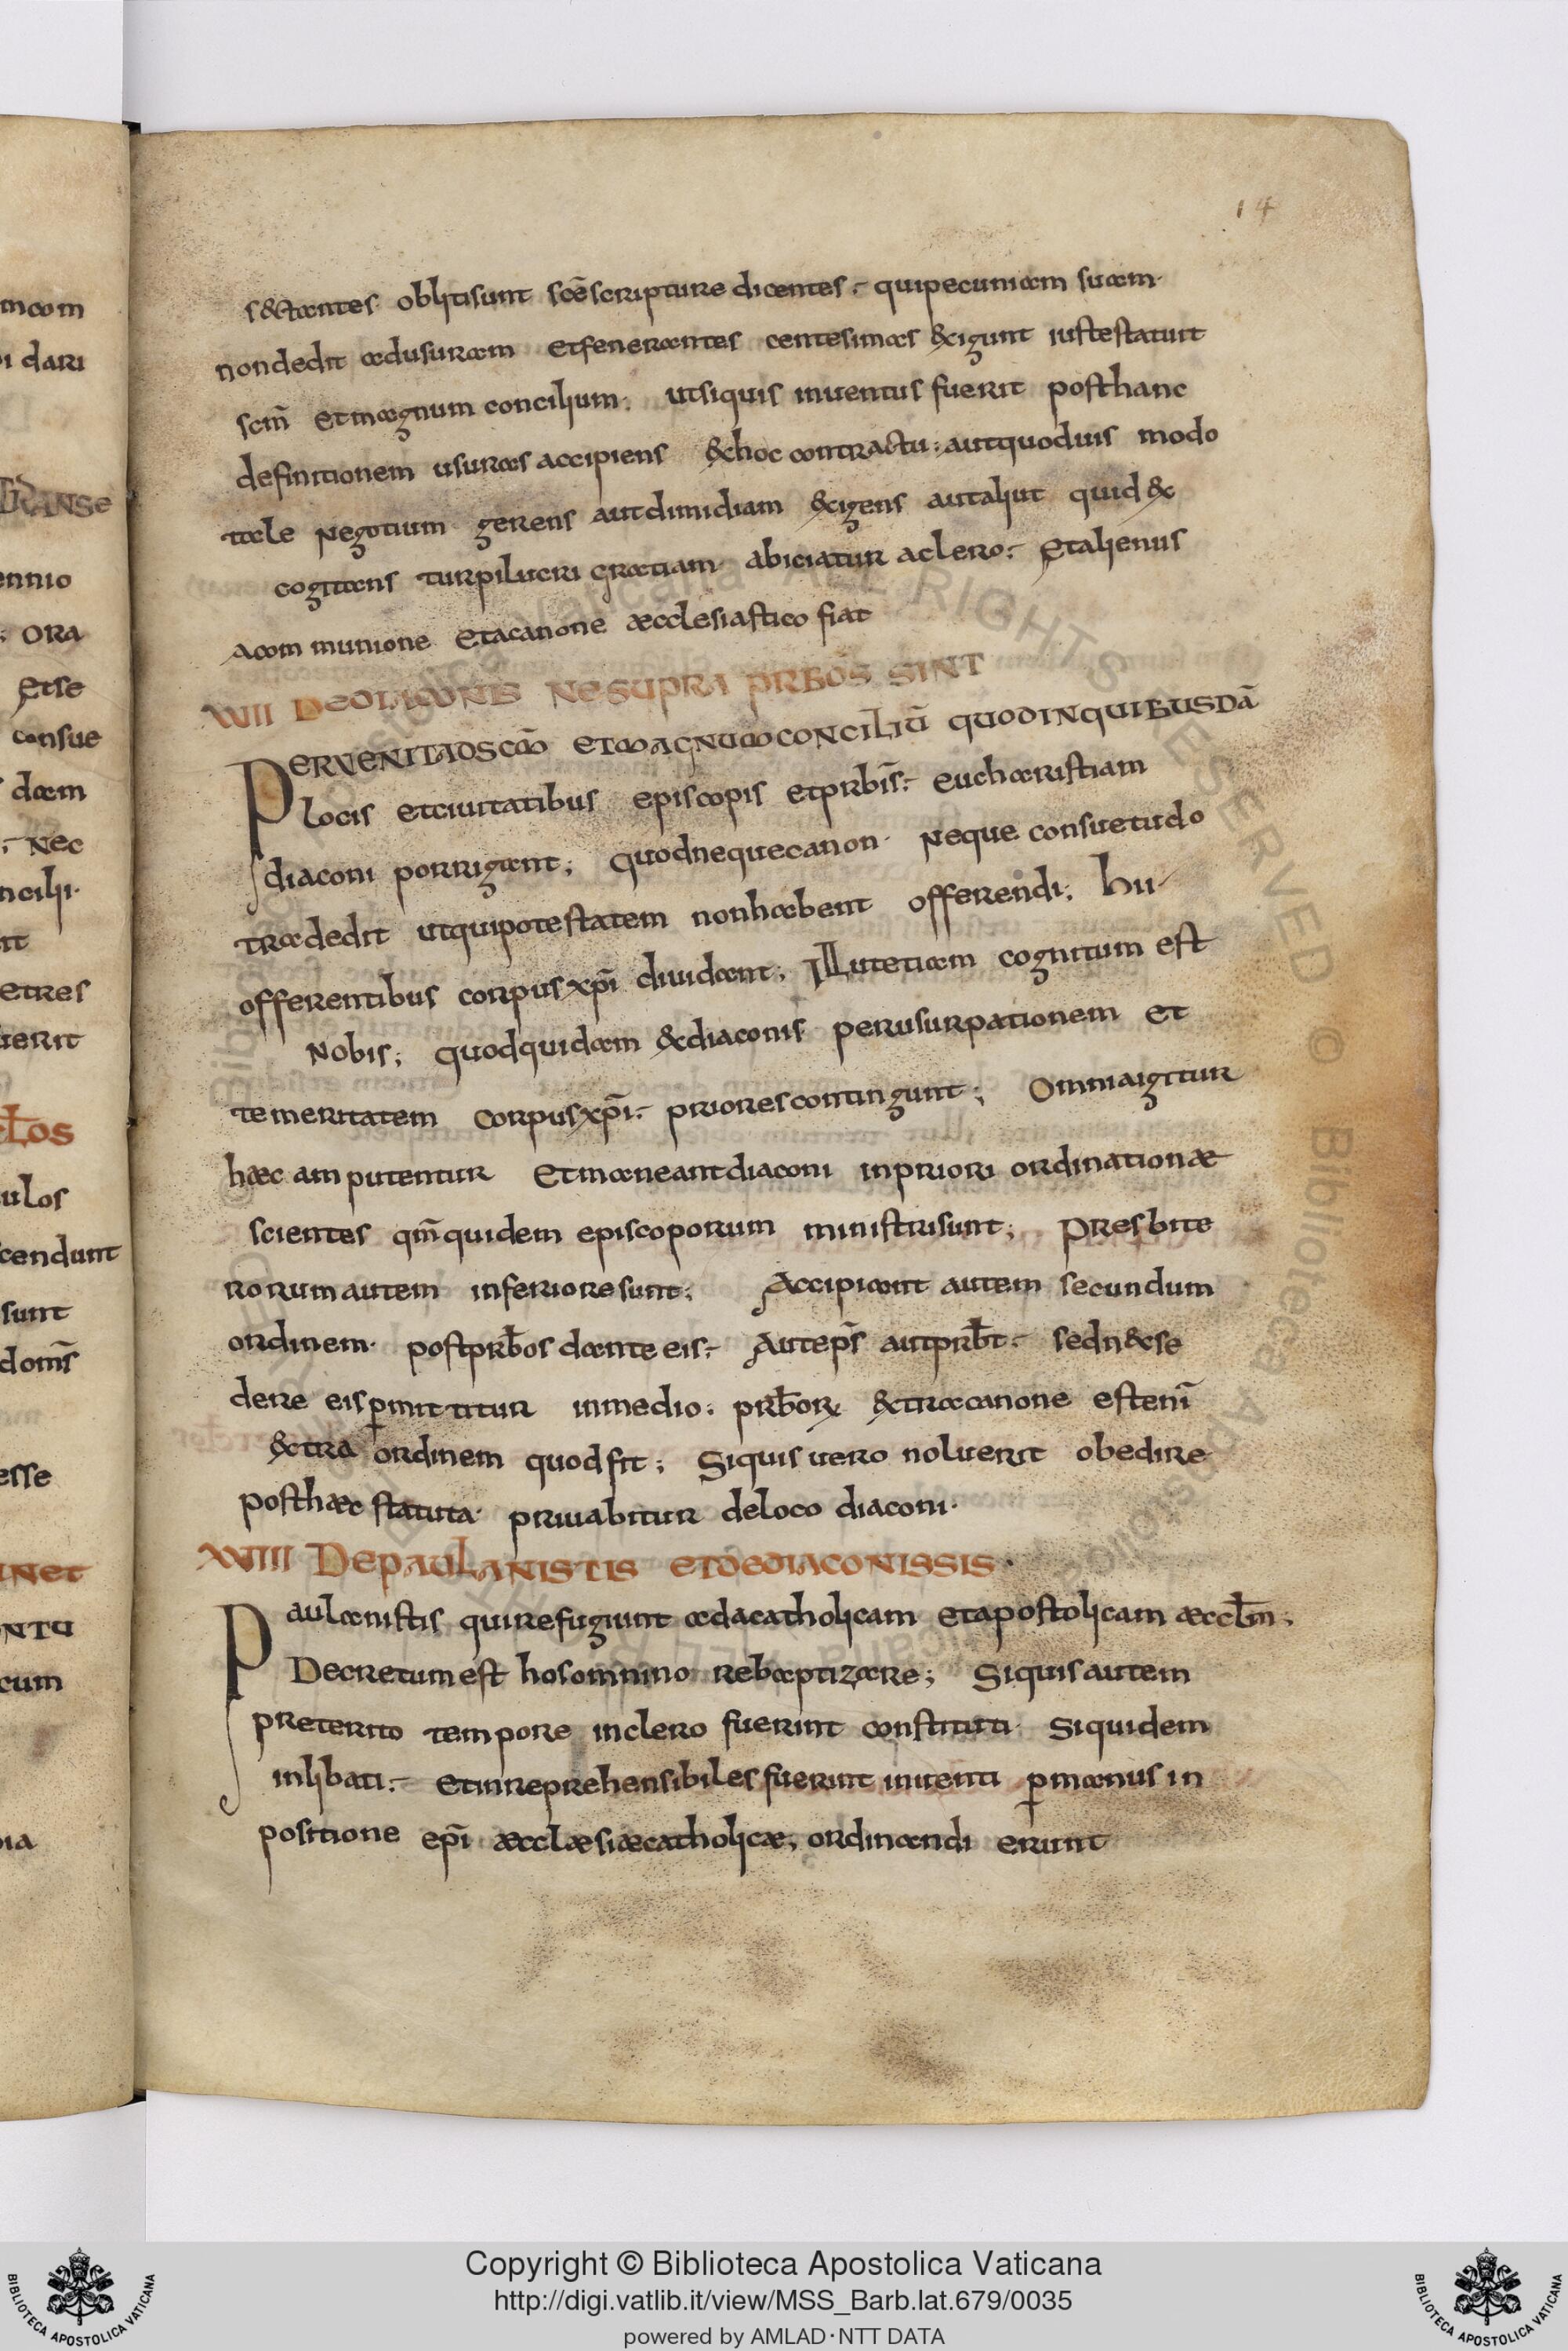 14
s&tantes oblitisunt scēscripture dicentes quipecuniam suam
nondedit adusuram etfenerantes centesimas &cigunt iustestatuit
scm̄ etmagnum concilium. utsiquis inuentus fuerit posthanc
definitionem usuras accipiens &choc contractu; autquoduis modo
tale negotium gerens autdimidiam &cigens autaliut quid &c
cogitans turpilucri gratiam abiciatur aclero. Etalienus
acom munione etacanone æcclesiastico fiat
XVII DEDIACONIS NESUPRA PRBOS SINT
PERVENITADSCM̄ ETMAGNUMCONCILIŪ QUODINQUIBUSDĀ
locis etciuitatibus episcopis etprbis̄. eucharistiam
diaconi porrigant; quodnequecanon neque consuetudo
tradedit utquipotestatem nonhabent offerendi; hii
offerentibus corpusxp̄i diuidant; Illutetiam cognitum est
nobis; quodquidam &diaconis perusurpationem et
temeritatem corpusxp̄i priorescontingunt; Omniaigitur
hæc amputentur etmaneantdiaconi inpriori ordinationæ
scientes qm̄quidem episcoporum ministrisunt; Presbite
rorumautem inferioresunt; Accipiant autem secundum
ordinem postprb̄os danteeis Autep̄s autprb̄t. sedn&se
dere eisp̱mittitur inmedio. prb̄orꝝ &ctracanone estenī
&ctra ordinem quodfit; Siquis uero noluerit obedire
posthæc statuta priuabitur deloco diaconi.
XVIIII DEPAULANISTIS ETDEDIACONISSIS
Paulanistis quirefugiunt adacatholicam etapostolicam æccl̄m;
Decretumest hosomnino rebaptizare; Siquisautem
preterito tempore inclero fuerint constituti siquidem
inlibati. etinreprehensibiles fuerint inuenti p̱manus in
positione ep̄i æcclæsiæcatholicæ, ordinandi erunt
Copyright © Biblioteca Apostolica Vaticana
http://digi.vatlib.it/view/MSS_Barb.lat.679/0035
powered by AMLAD·NTT DATA